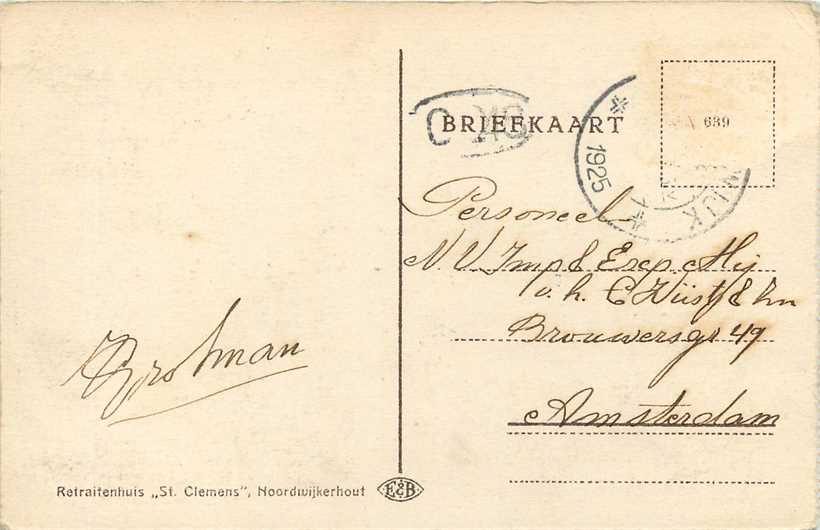 BRIEFKAART
639
1925
WIJK
Personeel
N V Imp & Exp Mij
v.h. C Wüst & Zn
Brouwersgr 49
Amsterdam
Retraitenhuis „St. Clemens", Noordwijkerhout
E&B